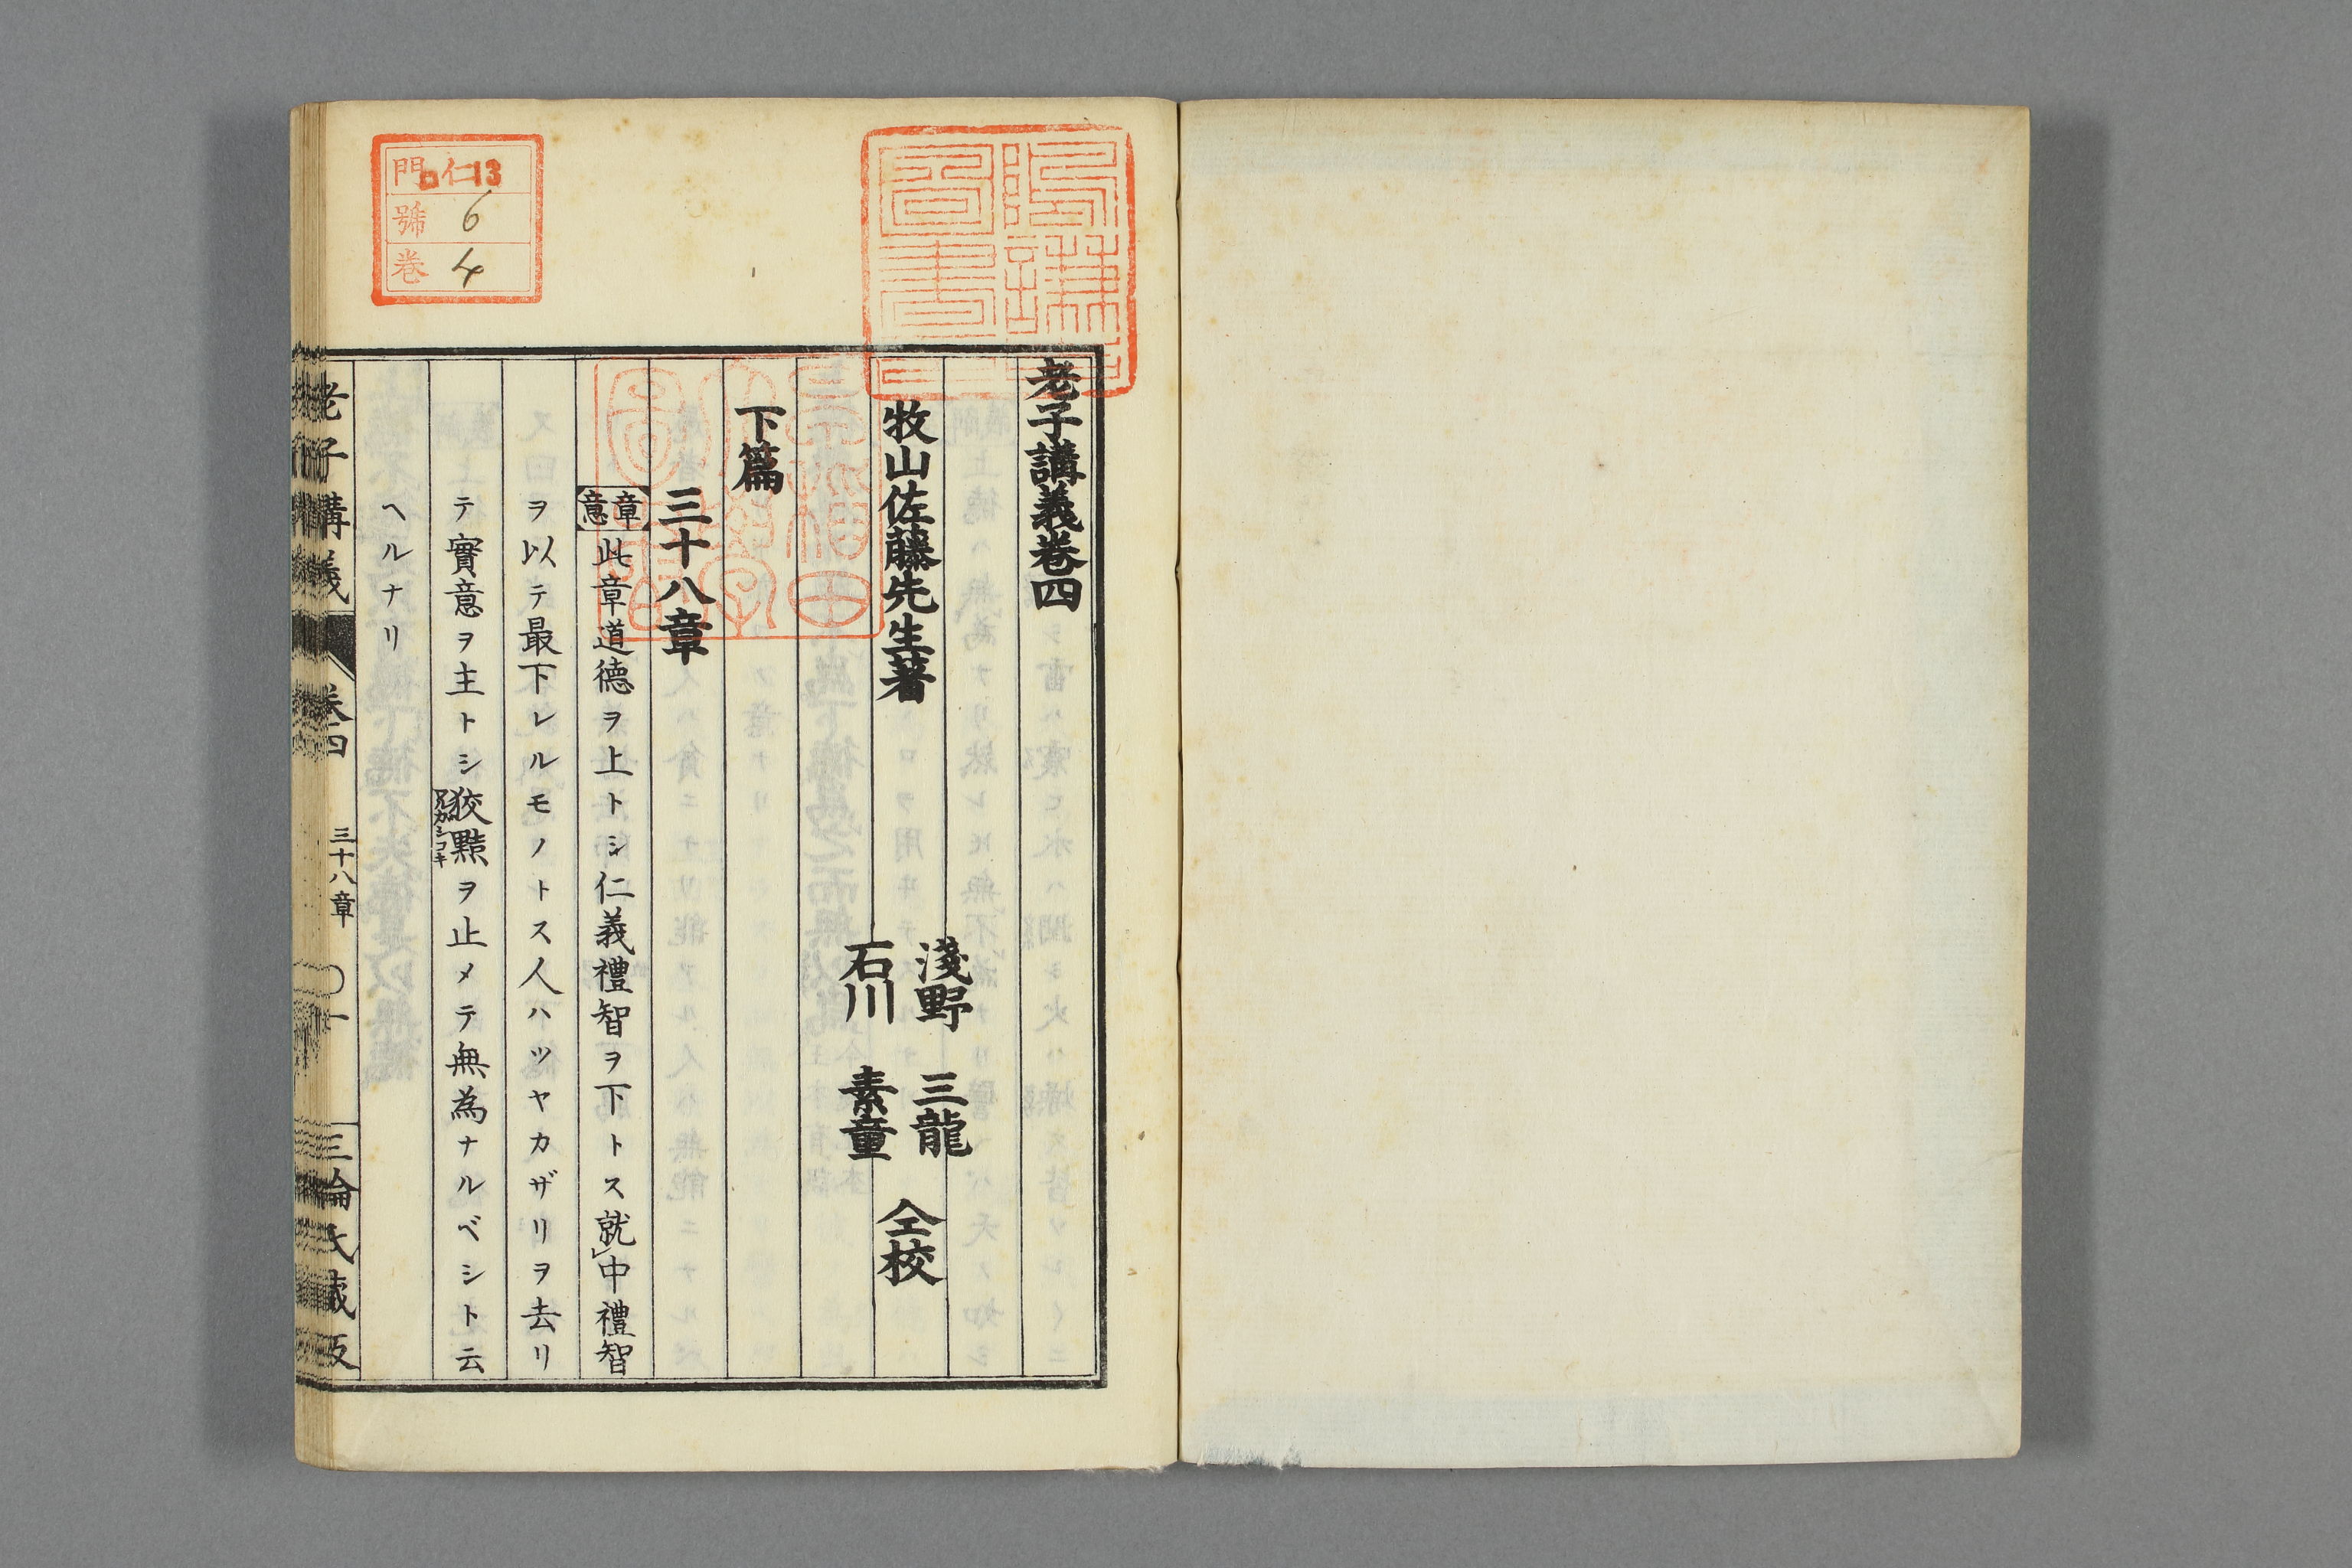 老子講義卷四
淺野 三龍
牧山佐藤先生著 仝校
石川 素童
下篇
三十八章
章意 此章道德ヲ上トシ仁義禮智ヲ下トス就中禮智
ヲ以テ最下レルモノトス人ハツヤカザリヲ去リ
テ實意ヲ主トシ狡黠ヲ止メテ無為ナルベシト云
ヘルナリ
老子講義 卷四 三十八章 〇一 三倫氏藏版
門 仁13
號 6
巻 4